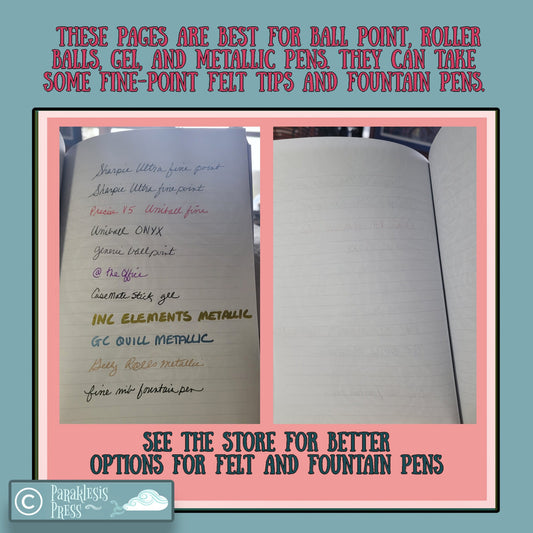 THESE PAGES ARE BEST FOR BALL POINT, ROLLER
BALLS, GEL, AND METALLIC PENS. THEY CAN TAKE
SOME FINE-POINT FELT TIPS AND FOUNTAIN PENS.
Sharpie Ultra fine point
Sharpie Ultra fine point
Precise V5 Uniball fine
Uniball ONYX
generic ball point
@ the Office
CaseMate stick gel
INC ELEMENTS METALLIC
GC QUILL METALLIC
Gelly Rolls metallic
fine nib fountain pen
SEE THE STORE FOR BETTER
OPTIONS FOR FELT AND FOUNTAIN PENS
© PARAKLESIS
PRESS